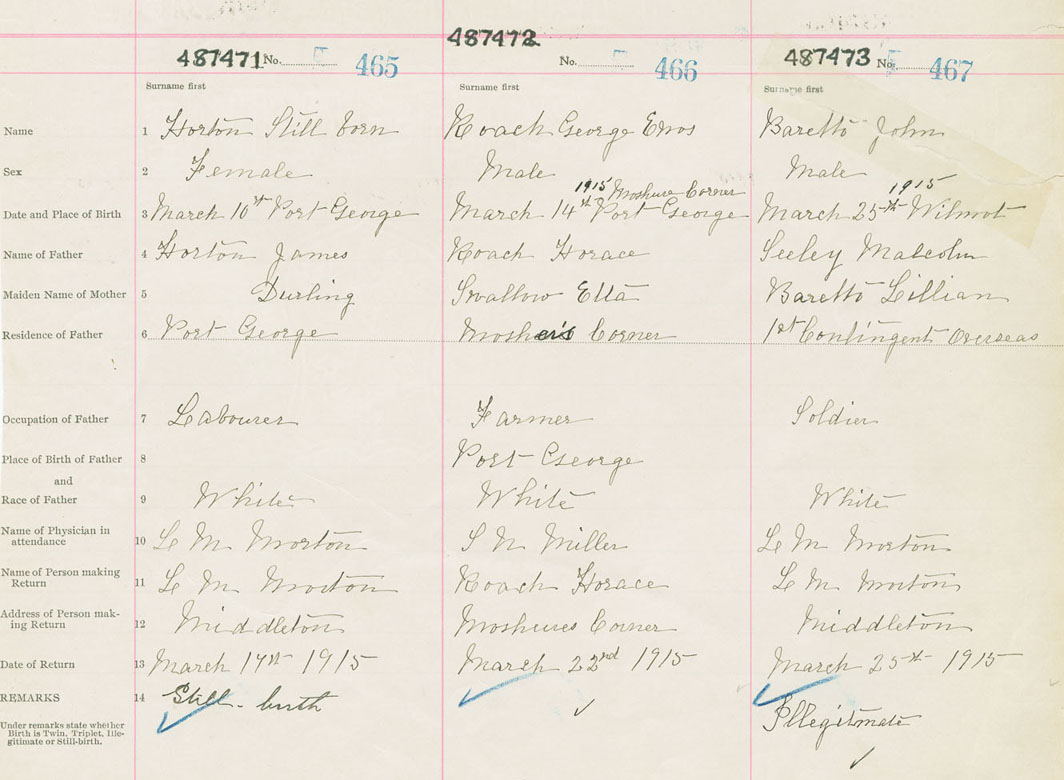 487471 No. 465 487472 No. 466 487473 No. 467
Surname first Surname first Surname first
Name 1 Horton Still born Roach George Enos Baretto John
Sex 2 Female Male Male
1915 Moshure Corner 1915
Date and Place of Birth 3 March 16st Port George March 14th Port George March 25th Wilmot
Name of Father 4 Horton James Roach Horace Seeley Malcolm
Maiden Name of Mother 5 Durling Swallow Etta Baretto Lillian
Residence of Father 6 Port George Mosher's Corner 1st Contingent Overseas
Occupation of Father 7 Labourer Farmer Soldier
Place of Birth of Father 8 Port George
and
Race of Father 9 White White White
Name of Physician in
attendance 10 L M Morton S N Miller L M Morton
Name of Person making
Return 11 L M Morton Roach Horace L M Morton
Address of Person mak-
ing Return 12 Middleton Moshures Corner Middleton
Date of Return 13 March 17th 1915 March 22nd 1915 March 25th 1915
REMARKS 14 Still-birth Illegitmate
Under remarks state whether
Birth is Twin, Triplet, Ille-
gitimate or Still-birth.